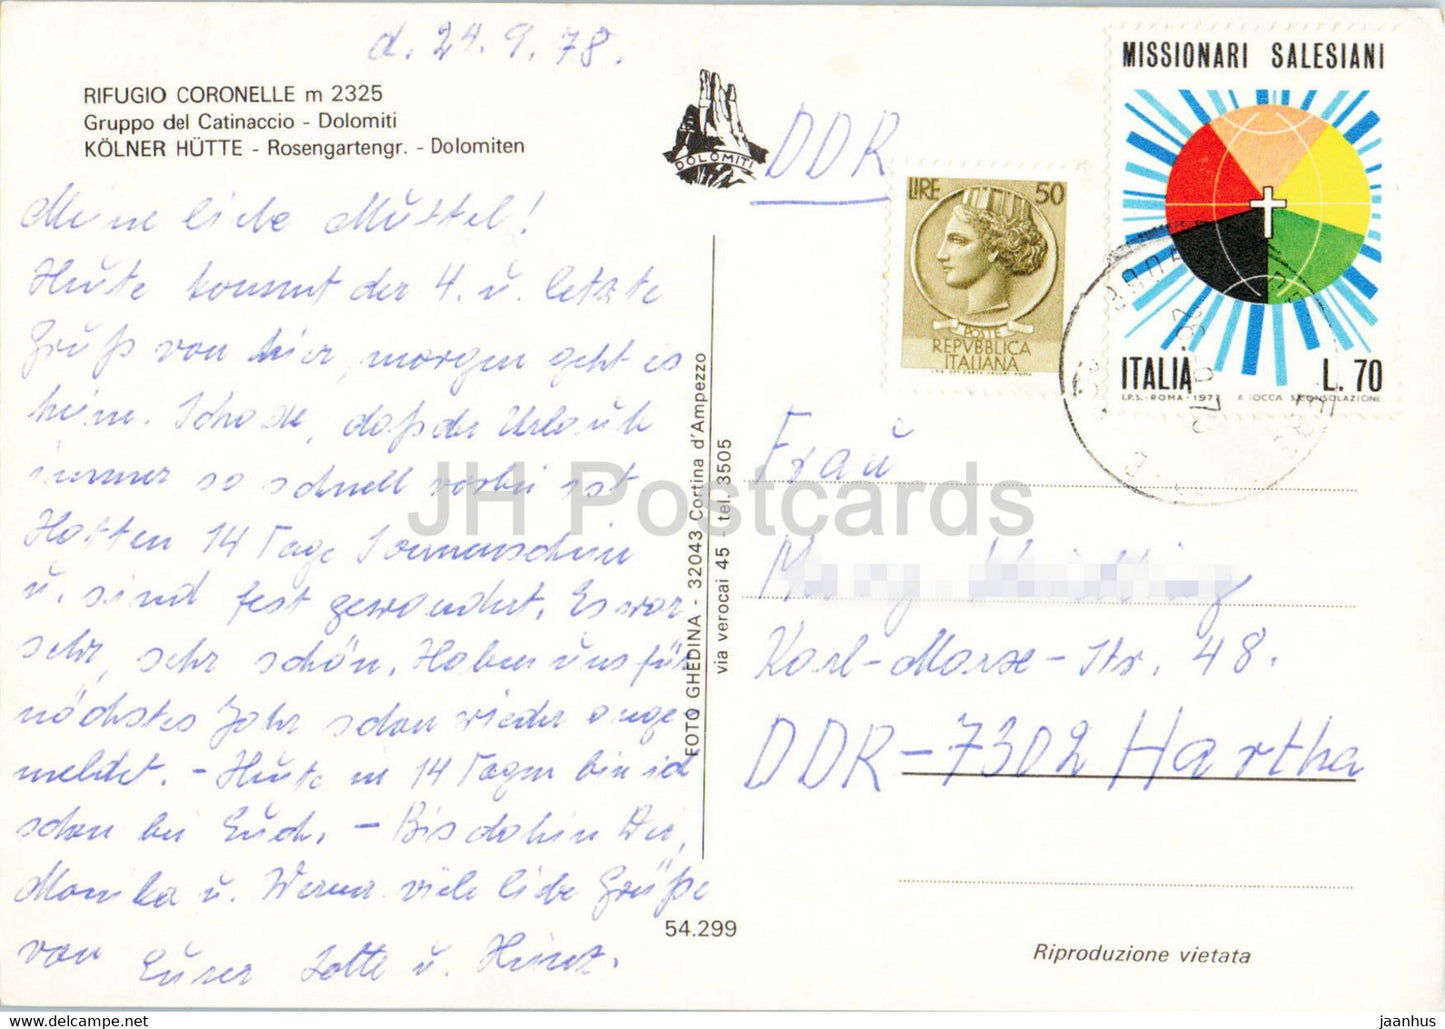 d. 24.9.78.
RIFUGIO CORONELLE m 2325
Gruppo del Catinaccio - Dolomiti
KÖLNER HÜTTE - Rosengartengr. - Dolomiten
DOLOMITI
DDR
LIRE 50
POSTE
REPVBBLICA
ITALIANA
MISSIONARI SALESIANI
ITALIA L. 70
I.P.S. - ROMA - 1977
Meine liebe Muttel!
Heute kommt der 4. u. letzte
Gruß von hier, morgen geht es
heim. Schade, daß der Urlaub
immer so schnell vorbei ist
Hatten 14 Tage Sonnenschein
u. sind fest gewandert. Es war
sehr, sehr schön. Haben uns für
nächstes Jahr schon wieder ange
meldet. - Heute in 14 Tagen bin ich
schon bei Euch. - Bis dahin Dir,
Monika u. Werner viele liebe Grüße
von Eurer Lotte u. Heinz.
FOTO GHEDINA - 32043 Cortina d'Ampezzo
via verocai 45 - tel. 3505
JH Postcards
Frau
Karl-Marx-Str. 48.
DDR-7302 Hartha
54.299
Riproduzione vietata
www.jhpostcard.com
jaanhus